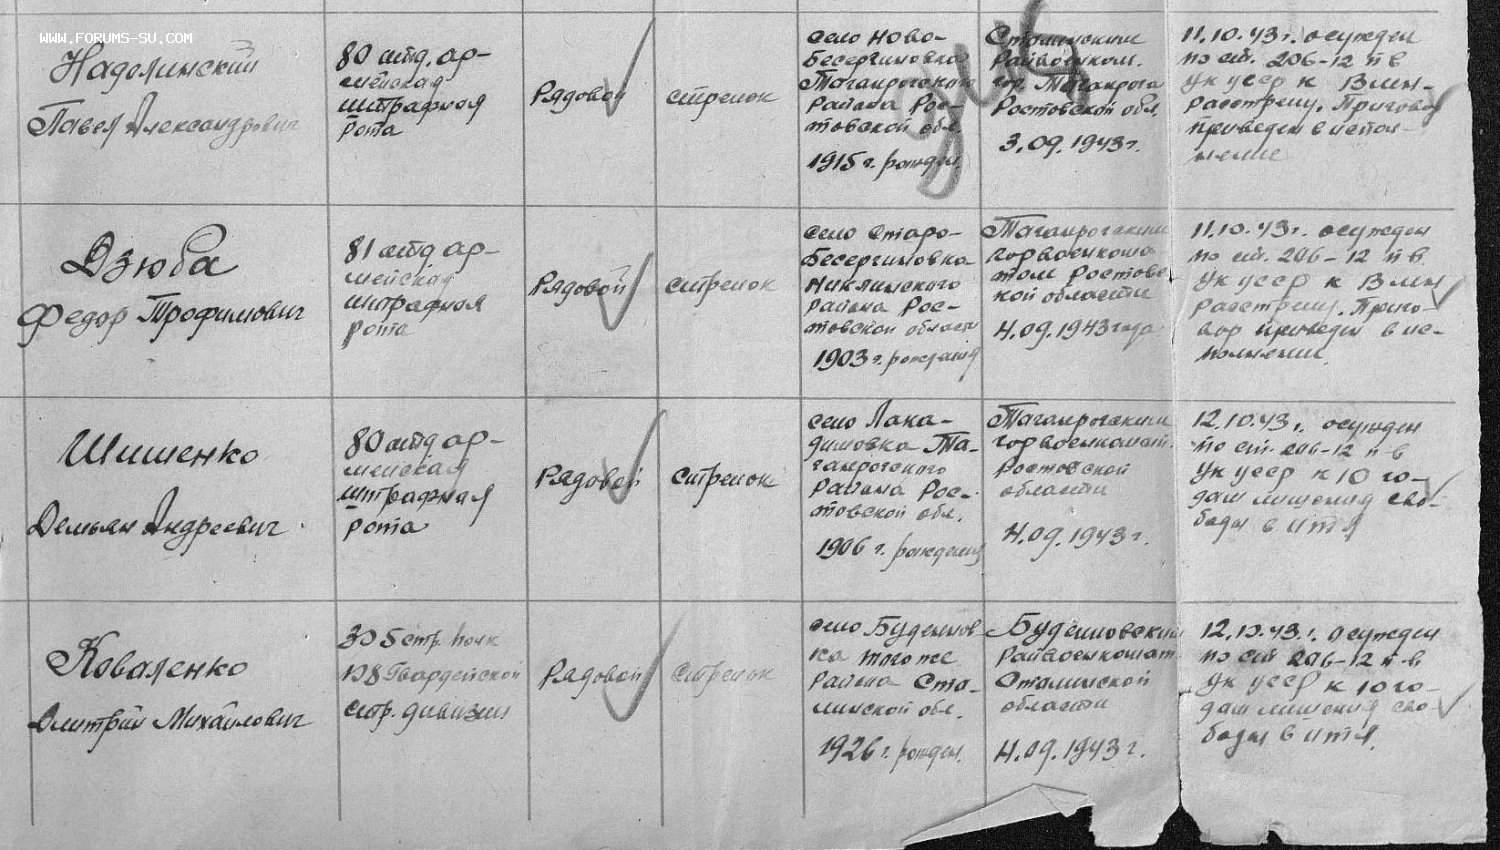 WWW.FORUMS-SU.COM
Наделинский
Павел Александрович
80 отд. ар-
мейская
штрафная
рота
Рядовой
стрелок
село Ново-
Бесергиновка
Таганрогского
района Рос-
товской обл.
1915 г. рожден.
Сталинским
Райвоенком.
гор. Таганрога
Ростовской обл.
3.09.1943 г.
11.10.43 г. осужден
по ст. 206-12 п-в
УК УССР к В.мн.
расстрелу. Приговор
приведен в испол-
нение
Дзюба
Федор Трофимович
81 отд ар-
мейская
штрафная
рота
Рядовой
стрелок
село Старо-
Бесергиновка
Никлинского
района Рос-
товской области
1903 г. рождения
Таганрогским
горвоенкома
том Ростовс
кой области
4.09.1943 года
11.10.43 г. осужден
по ст. 206-12 п-в.
УК УССР к В мн
расстрелу. Приго-
вор приведен в ис-
полнение.
Шишенко
Демьян Андреевич
80 отд ар-
мейская
штрафная
рота
Рядовой
стрелок
село Лака-
димовка Та-
ганрогского
района Рос-
товской обл.
1906 г. рождения
Таганрогским
горвоенкомат.
Ростовской
области
4.09.1943 г.
12.10.43 г. осужден
по ст. 206-12 п-в
УК УССР к 10 го-
дам лишения сво-
боды в ИТЛ
Коваленко
Дмитрий Михайлович
305 стр. полк
108 Гвардейской
стр. дивизии
Рядовой
стрелок
село Буденнов
ка того же
района Ста-
линской обл.
1926 г. рожден.
Буденновский
Райвоенкомат
Сталинской
области
4.09.1943 г.
12.10.43 г. осужден
по ст 206-12 п-в
УК УССР к 10 го-
дам лишения сво-
боды в ИТЛ.